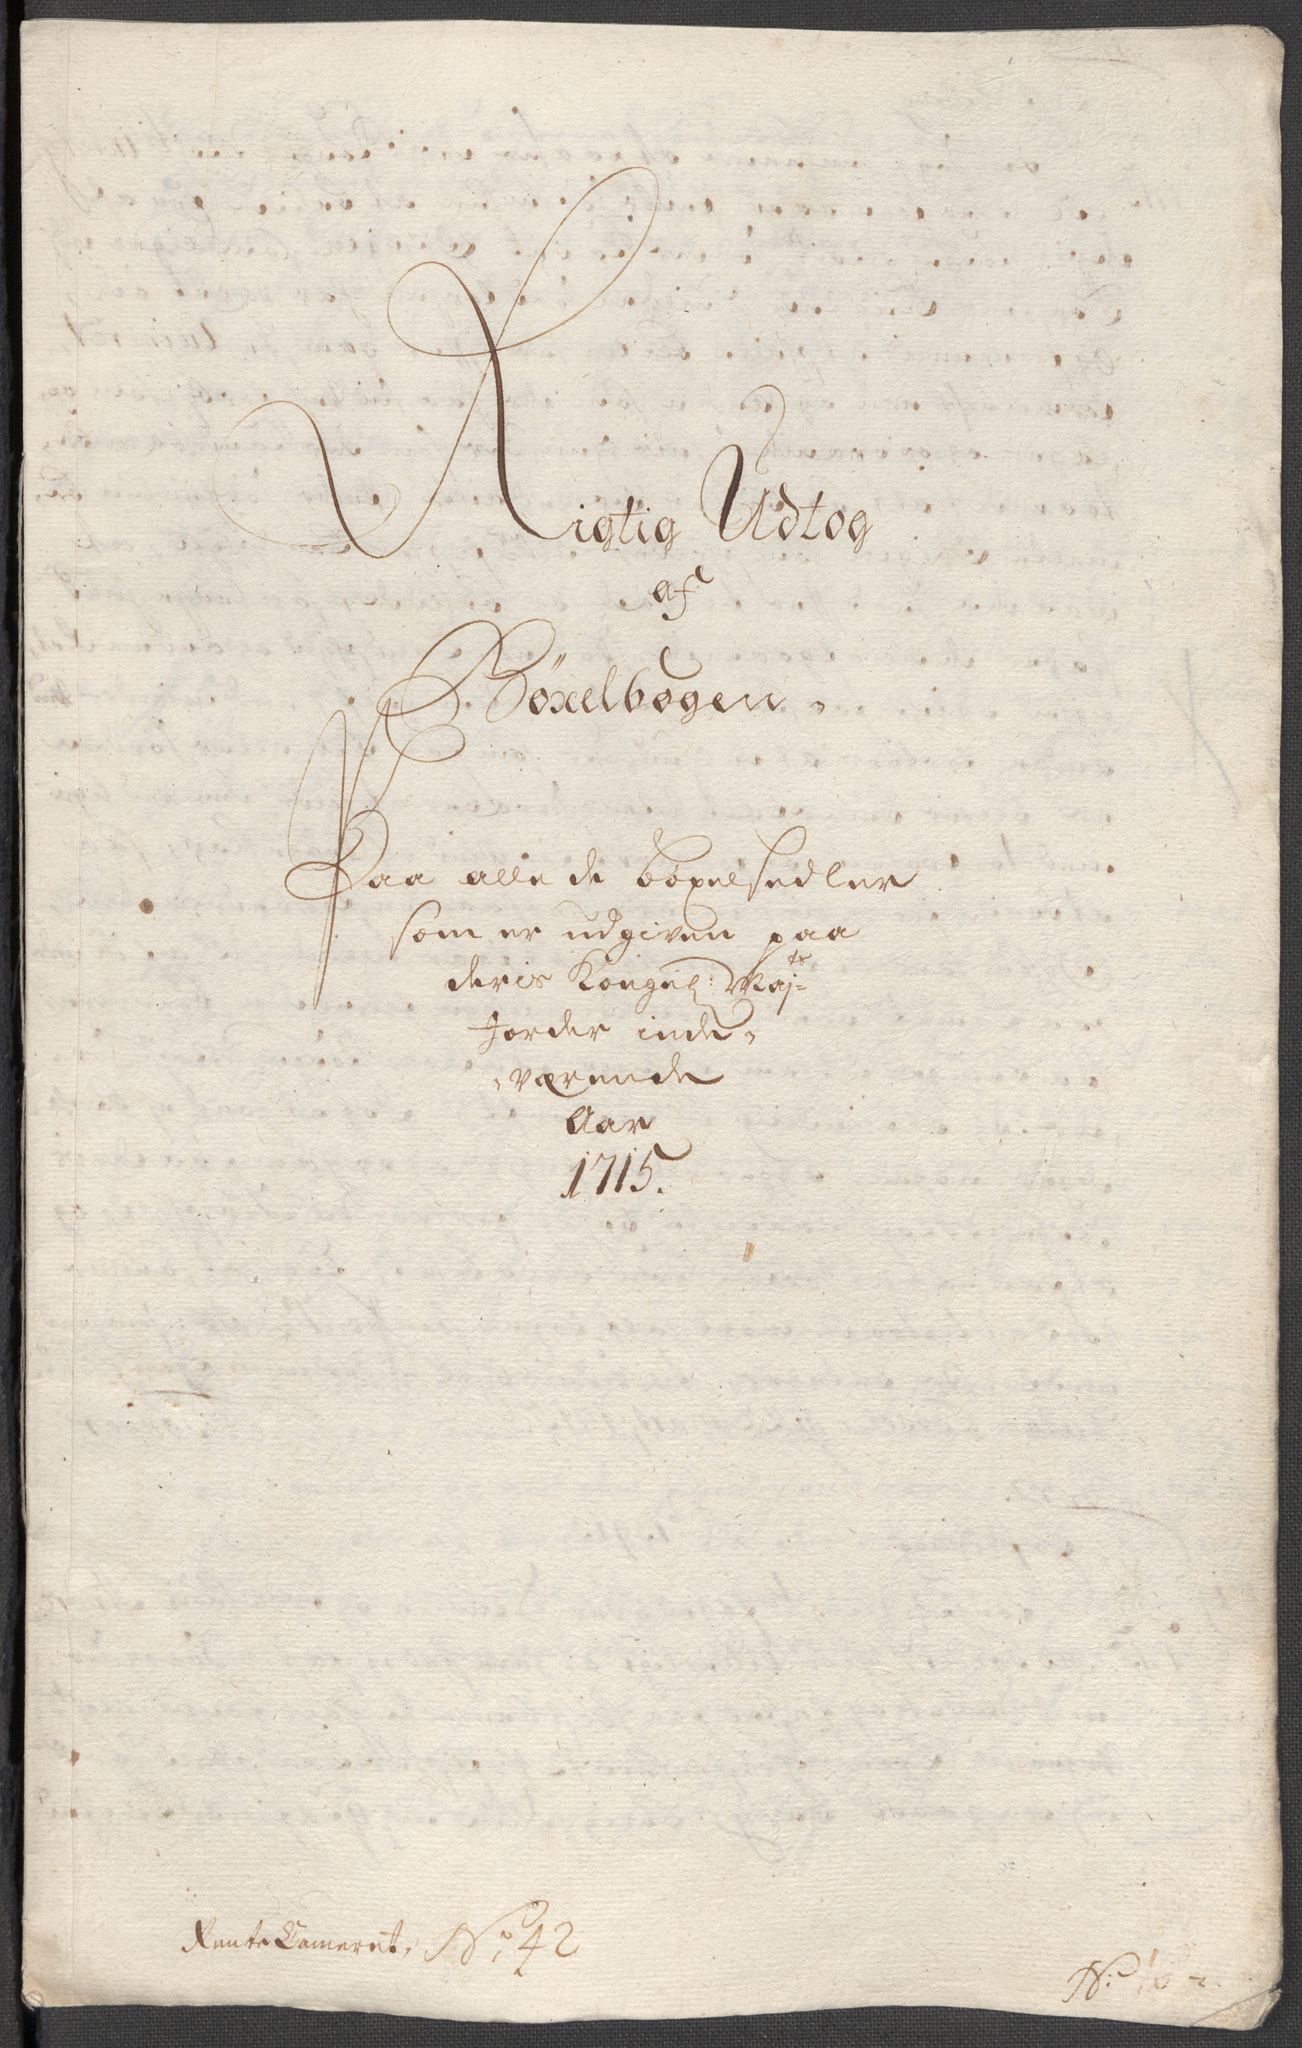 Rigtig Udtog
af
Bøxelbogen.
Paa alle de bøxelsedler
som er udgiven paa
deris Kongel: Maj:ts
Jorder inde-
-værende
Aar
1715.
Rente Cameret, No: 42
No: